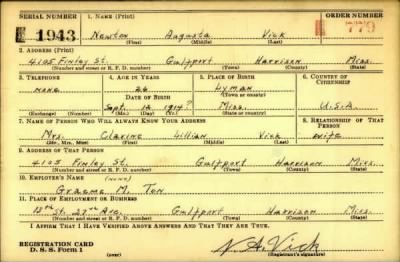 SERIAL NUMBER 1. NAME (Print) ORDER NUMBER
1943 Newton Augusta Vick 779
(First) (Middle) (Last)
2. ADDRESS (Print)
4105 Finley St. Gulfport Harrison Miss.
(Number and street or R. F. D. number) (Town) (County) (State)
3. TELEPHONE 4. AGE IN YEARS 5. PLACE OF BIRTH 6. COUNTRY OF CITIZENSHIP
none 26 Lyman
DATE OF BIRTH (Town or county)
Sept. 12 1914? Miss. U.S.A.
(Exchange) (Number) (Mo.) (Day) (Yr.) (State or country)
7. NAME OF PERSON WHO WILL ALWAYS KNOW YOUR ADDRESS 8. RELATIONSHIP OF THAT PERSON
Mrs. Lillian Vick Wife
(Mr., Mrs., Miss) (First) (Middle) (Last)
9. ADDRESS OF THAT PERSON
4105 Finley St. Gulfport Harrison Miss.
(Number and street or R. F. D. number) (Town) (County) (State)
10. EMPLOYER'S NAME (none)
M.
11. PLACE OF EMPLOYMENT OR BUSINESS
13th St. 27th Ave. Gulfport Harrison Miss.
(Number and street or R. F. D. number) (Town) (County) (State)
I AFFIRM THAT I HAVE VERIFIED ABOVE ANSWERS AND THAT THEY ARE TRUE.
REGISTRATION CARD
D. S. S. Form 1 (over) N. A. Vick
(Registrant's signature)